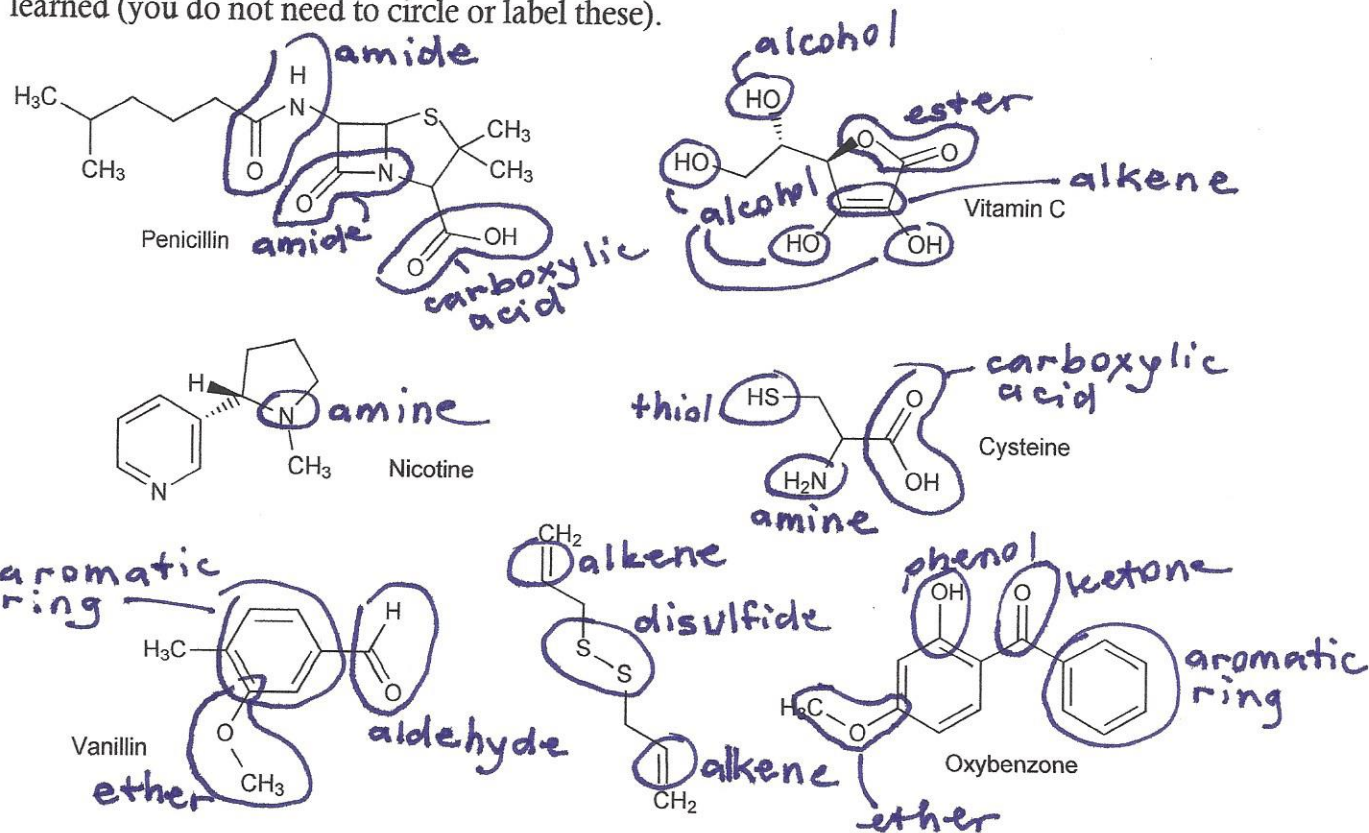 learned (you do not need to circle or label these).
amide
H
H₃C
N
S
CH₃
CH₃
CH₃
O
O
N
OH
O
Penicillin
amide
carboxylic
acid
alcohol
HO
ester
HO
O
O
alkene
alcohol
Vitamin C
HO
OH
H
N
amine
CH₃
N
Nicotine
thiol
HS
O
carboxylic
acid
Cysteine
H₂N
OH
amine
aromatic
ring
H
H₃C
O
O
CH₃
Vanillin
ether
aldehyde
CH₂
alkene
disulfide
S
S
alkene
CH₂
phenol
ketone
OH
O
aromatic
ring
H₃C
O
Oxybenzone
ether